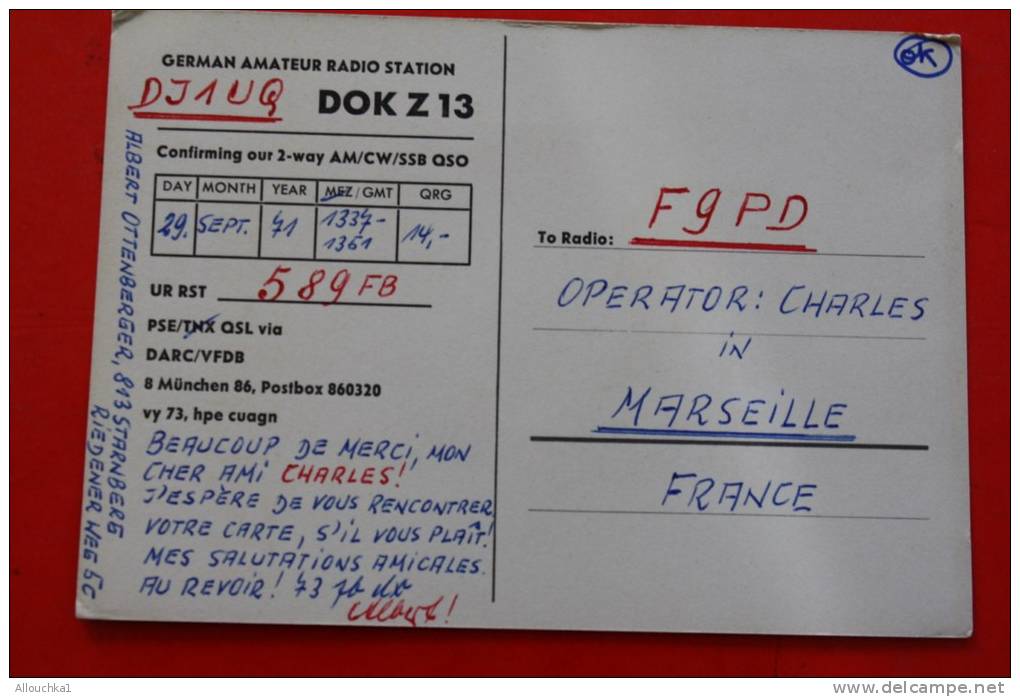 GERMAN AMATEUR RADIO STATION
DJ1UQ DOK Z 13
Confirming our 2-way AM/CW/SSB QSO
DAY MONTH YEAR MEZ/GMT QRG
29. SEPT. 71 1337-1351 14,-
UR RST 589 FB
PSE/TNX QSL via
DARC/VFDB
8 München 86, Postbox 860320
vy 73, hpe cuagn
BEAUCOUP DE MERCI, MON
CHER AMI CHARLES!
J'ESPÈRE DE VOUS RENCONTRER,
VOTRE CARTE, S'IL VOUS PLAÎT!
MES SALUTATIONS AMICALES.
AU REVOIR! 73 fb dx
Albert!
ALBERT OTTENBERGER, 813 STARNBERG
RIEDENER WEG 5C
ok
To Radio: F9PD
OPERATOR: CHARLES
IN
MARSEILLE
FRANCE
Allouchka1
www.delcampe.net